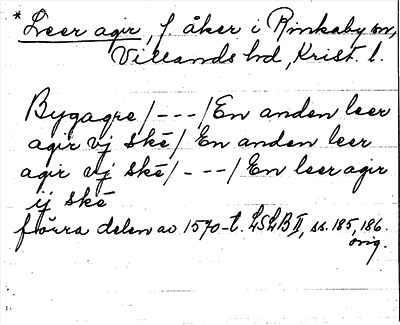 * Leer agir, f. åker i Rinkaby sn,
Villands hd, Krist. l.
Bygagre /---/ En anden leer
agir vj skē / En anden leer
agir vj skē / --- / En leer agir
ij skē
förra delen av 1570-t. LSLB II, ss. 185, 186.
orig.